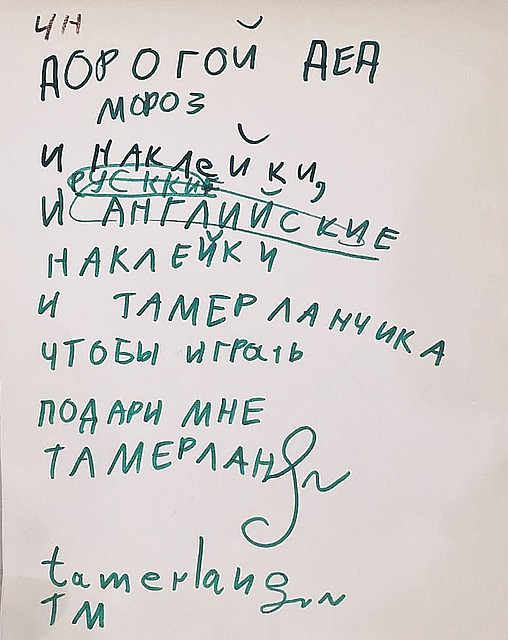 ЧН
ДОРОГОЙ ДЕД
МОРОЗ
И НАКЛЕЙКИ,
РУСККИЕ
И АНГЛИЙСКИЕ
НАКЛЕЙКИ
И ТАМЕРЛАНЧИКА
ЧТОБЫ ИГРАТЬ
ПОДАРИ МНЕ
ТАМЕРЛАН
tamerlan
ТМ